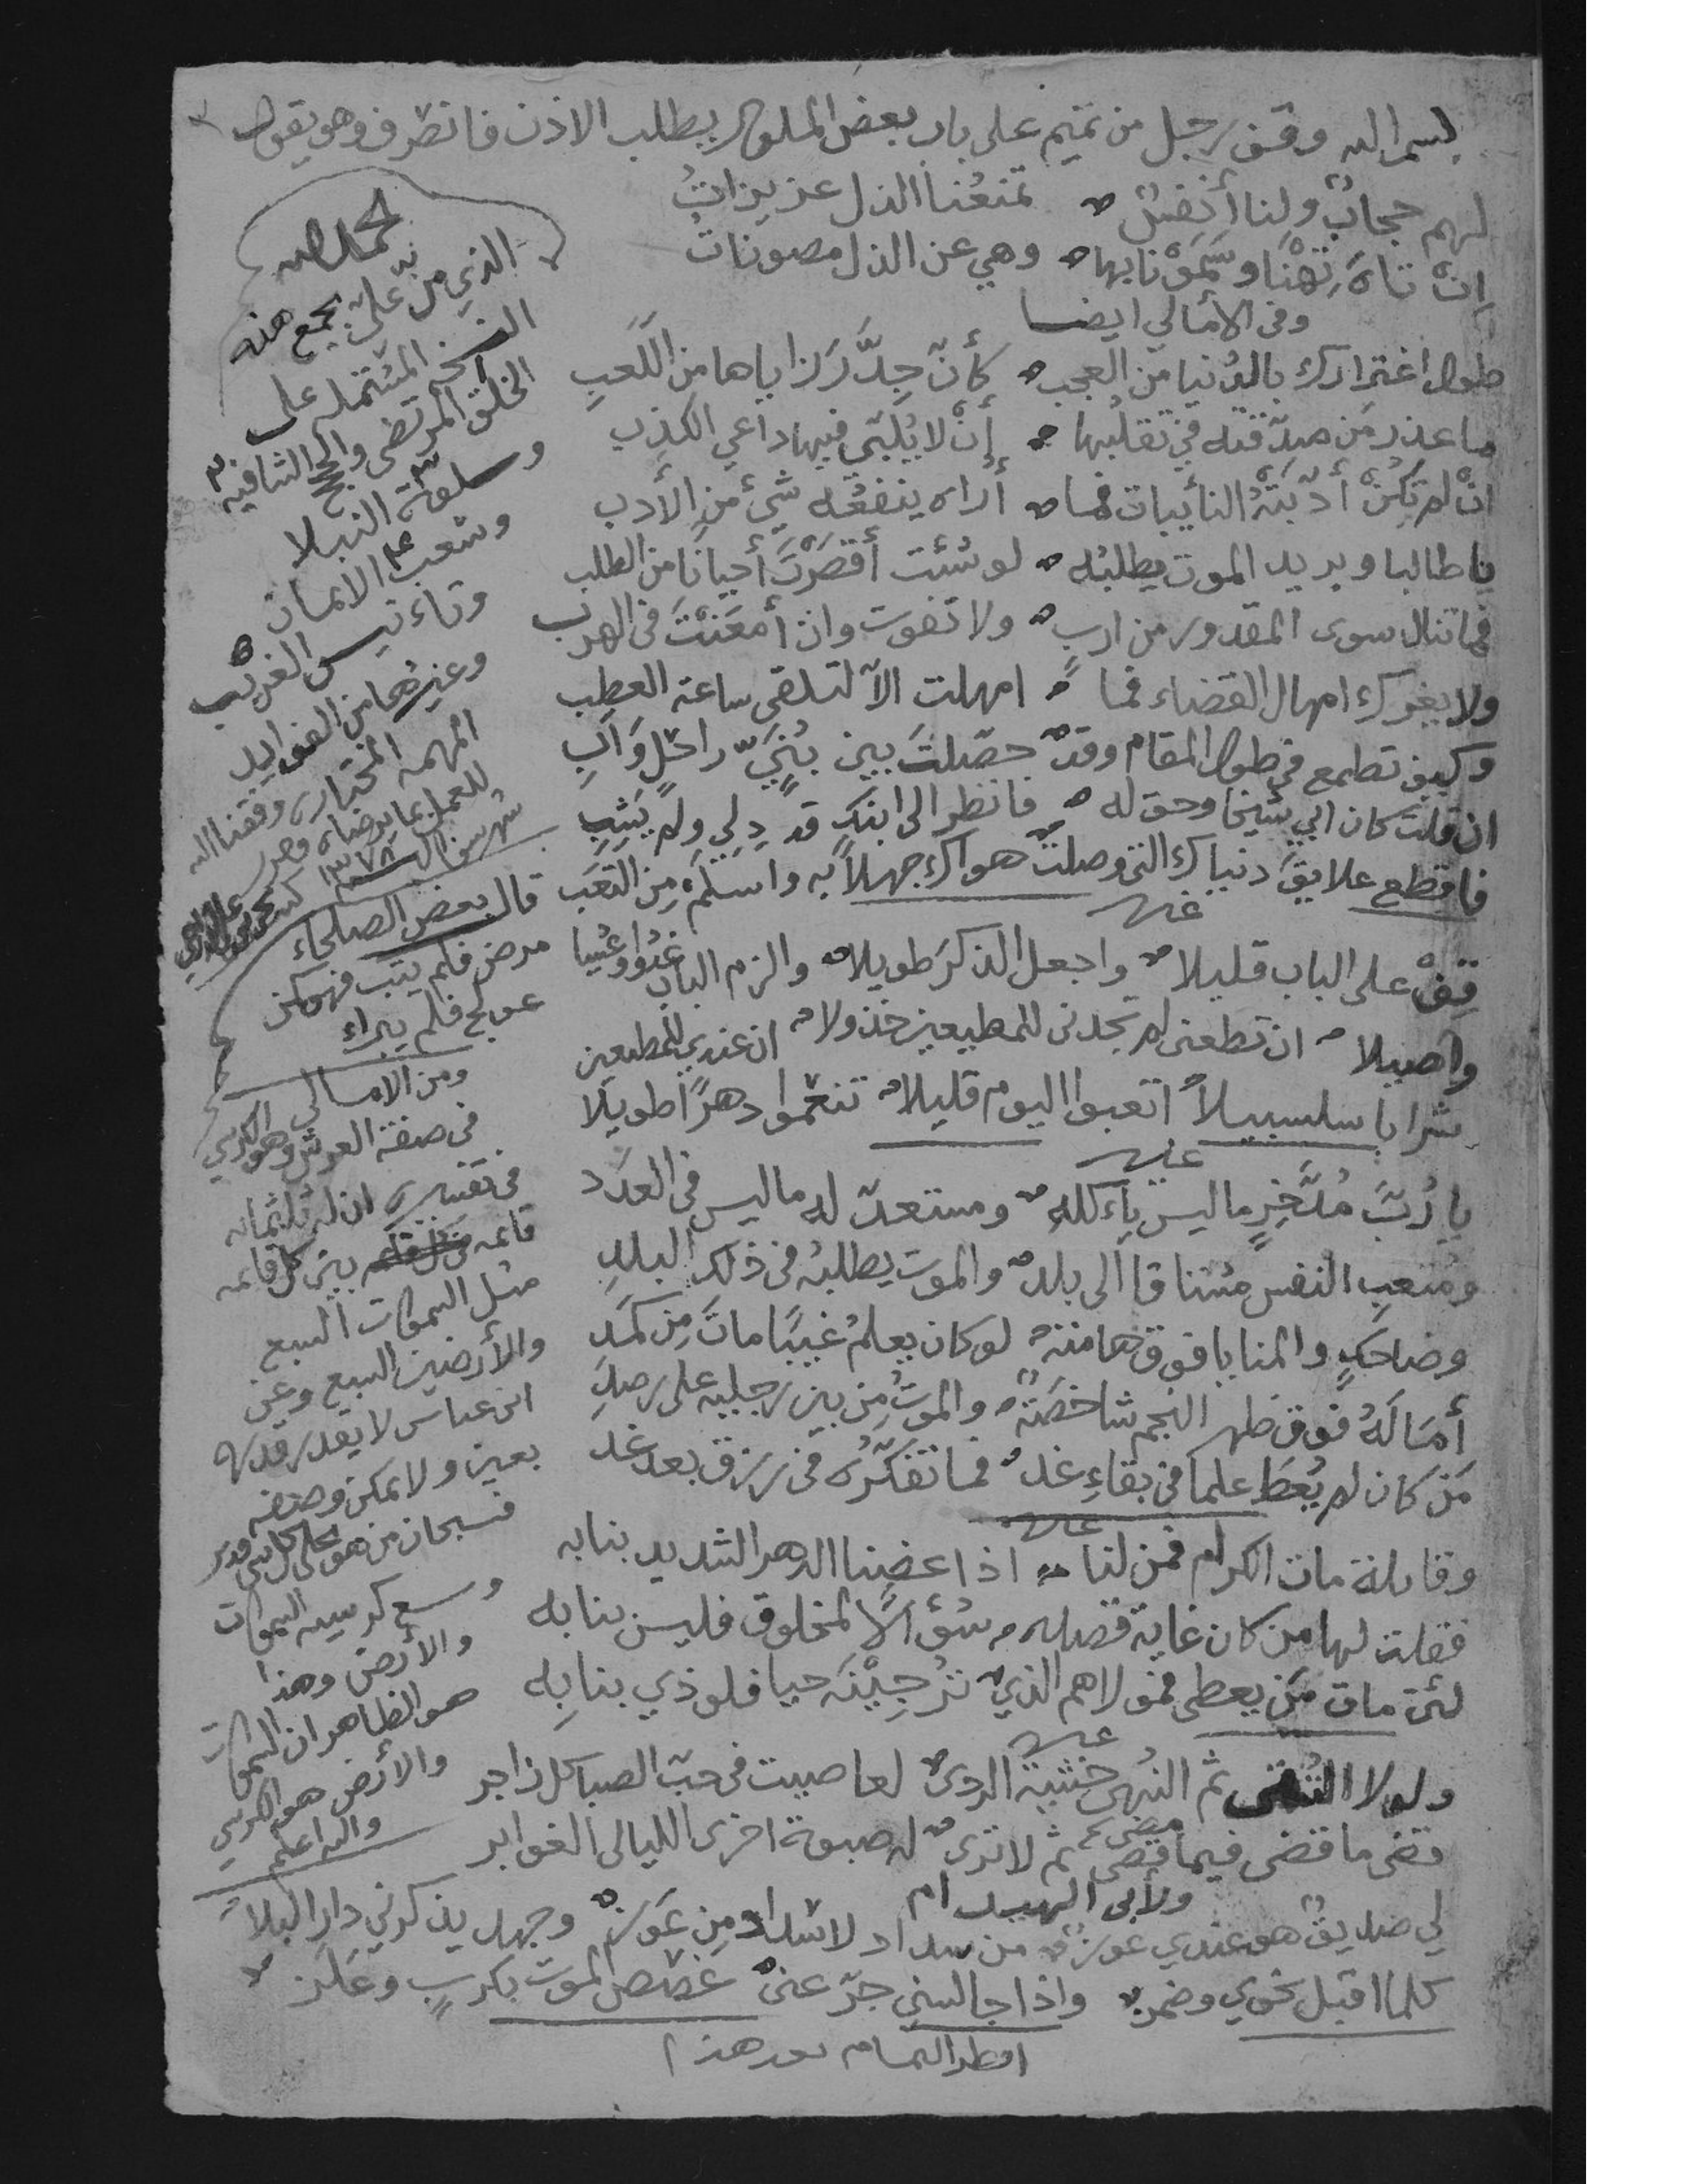 بسم الله وقف رجل من تميم على باب بعض الملوك يطلب الاذن فانصرف وهو يقول
لهم حجابٌ ولنا أنفسٌ تمنعُنا الذل عزيزاتُ
إنْ تاهَ تِهْنَا وسَمَوْنا بها وهي عن الذل مصوناتُ
وفى الأمالي ايضا
طول اغترارك بالدُنيا من العجب كأنّ جِدَّ رَزاياها من اللّعبِ
ما عذر من صدّقته في تقلبها إنْ لا يُلبّي فيها داعي الكذب
انْ لم تكنْ أدّبَتْهُ النائبات فما أراه ينفعُه شيءٌ من الأدب
يا طالبا وبريد الموت يطلبُه لو شئت أقصَرْتَ أحيانًا من الطلب
فما تنال سوى المقدور من ارب ولا تفوت وان أمعَنْتَ فى الهرب
ولا يغررك امهال القضاء فما امهلت الاّ لتلقى ساعة العطب
وكيف تطمع في طول المقام وقد حصّلتَ بين بُنَيٍّ راحلٍ وَأبِ
ان قلت كان ابي شيخا وحق له فانظر الى ابنك قد دلي ولم يَشِبِ
فاقطع علايقَ دنياك التي وصلت هواك جهلاً به واسلَمْ مِن التعَب
غيره
قِفْ على الباب قليلا واجعل الذكرَ طويلا والزم الباب غدوا وعشيا
واصيلا ان تطعنى لم تجدنى للمطيعين خذولا ان عندي للمطيعين
شرابا سلسبيلاً اتعبوا اليوم قليلا تنعموا دهرًا طويلا
غيره
يا رُبَّ مُدَّخِرٍ ما ليس يأكله ومستعدّ له ما ليس في العدَد
ومُتعبِ النفس مشتاقا الى بلد والموت يطلبُه فى ذلك البلدِ
وضاحكٍ والمنايا فوق هامته لو كان يعلمُ غيبًا ماتَ مِن كمَدِ
أمَالَهُ فوق ظهر النجم شاخصَةٌ والموتُ مِن بين رجليه على رصدِ
مَن كان لم يُعطَ علما في بقاءِ غد فما تفكّرُه فى رزق بعد غد
غيره
وقائلة مات الكرام فمن لنا اذا عضنا الدهر الشديد بنابه
فقلت لها من كان غاية قصده سؤالاً لمخلوق فليس بنابه
لئن مات مَن يعطي فمولاهم الذي تُرجِيْنَه حيا فلوذي بنا به
غيره
ولولا التُقى ثم النُهى خشية الردى لعاصيت فى حب الصبا كل زاجر
قضى ما قضى فيما مضى ثم لا ترى له صبوة اخرى الليالى الغوابر
لي صديقٌ هو عندي عوزٌ من سداد لا سداد مِن عَوز وجهه يذكرني دار البلا
كلما اقبل نحوي وضمز واذا جالسني جرّعنى غصص الموت بكربٍ وعَلَز
الحمد لله
الذي من عليّ بجمع هذه
النسخ المشتمله على
الخلق المرتضى والحجج الشافيه
وسلوة النبلا
وشعب الايمان
وتأنيس الغريب
وغيرهما من الفوايد
المهمه المختاره وفقنا الله
للعمل بما يرضاه وحرر
١٣٧٨
قال بعض الصلحاء
مرض فلم يتب فهو كمن
عولج فلم يبراء
ومن الامالى
فى صفة العرش وهو الكرسي
في تفسيره ان له ثلثمائه
قائمه بين كل قائمه
مثل السموات السبع
والأرضين السبع وعن
ابن عباس لا يقدر قدره
بعين ولا يمكن وصفه
فسبحان من هو على كل شي قدير
وسع كرسيه السموات
والأرض وهذا
هو الظاهر ان السموات
والأرض هو الكرسي
والله اعلم